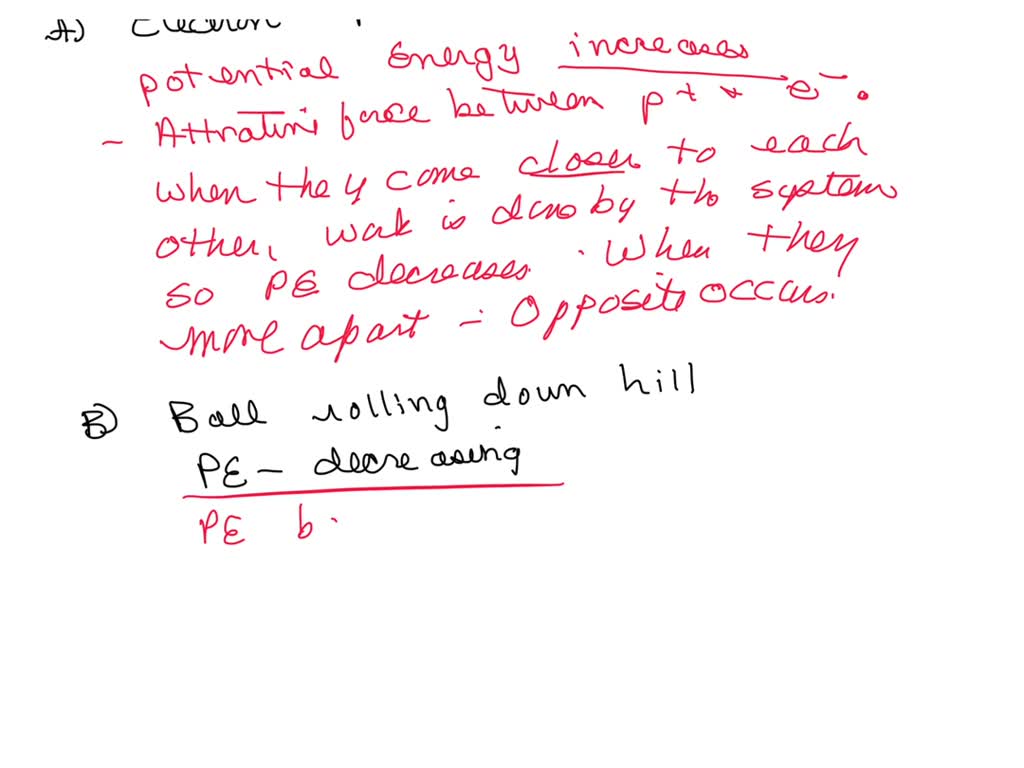 A) Electron
potential Energy increases
- Attrative force between p+ & e-.
when they come closer to each
other, work is done by the system
so PE decreases. When they
more apart - Opposite occurs.
B) Ball rolling down hill
PE - decreasing
PE b